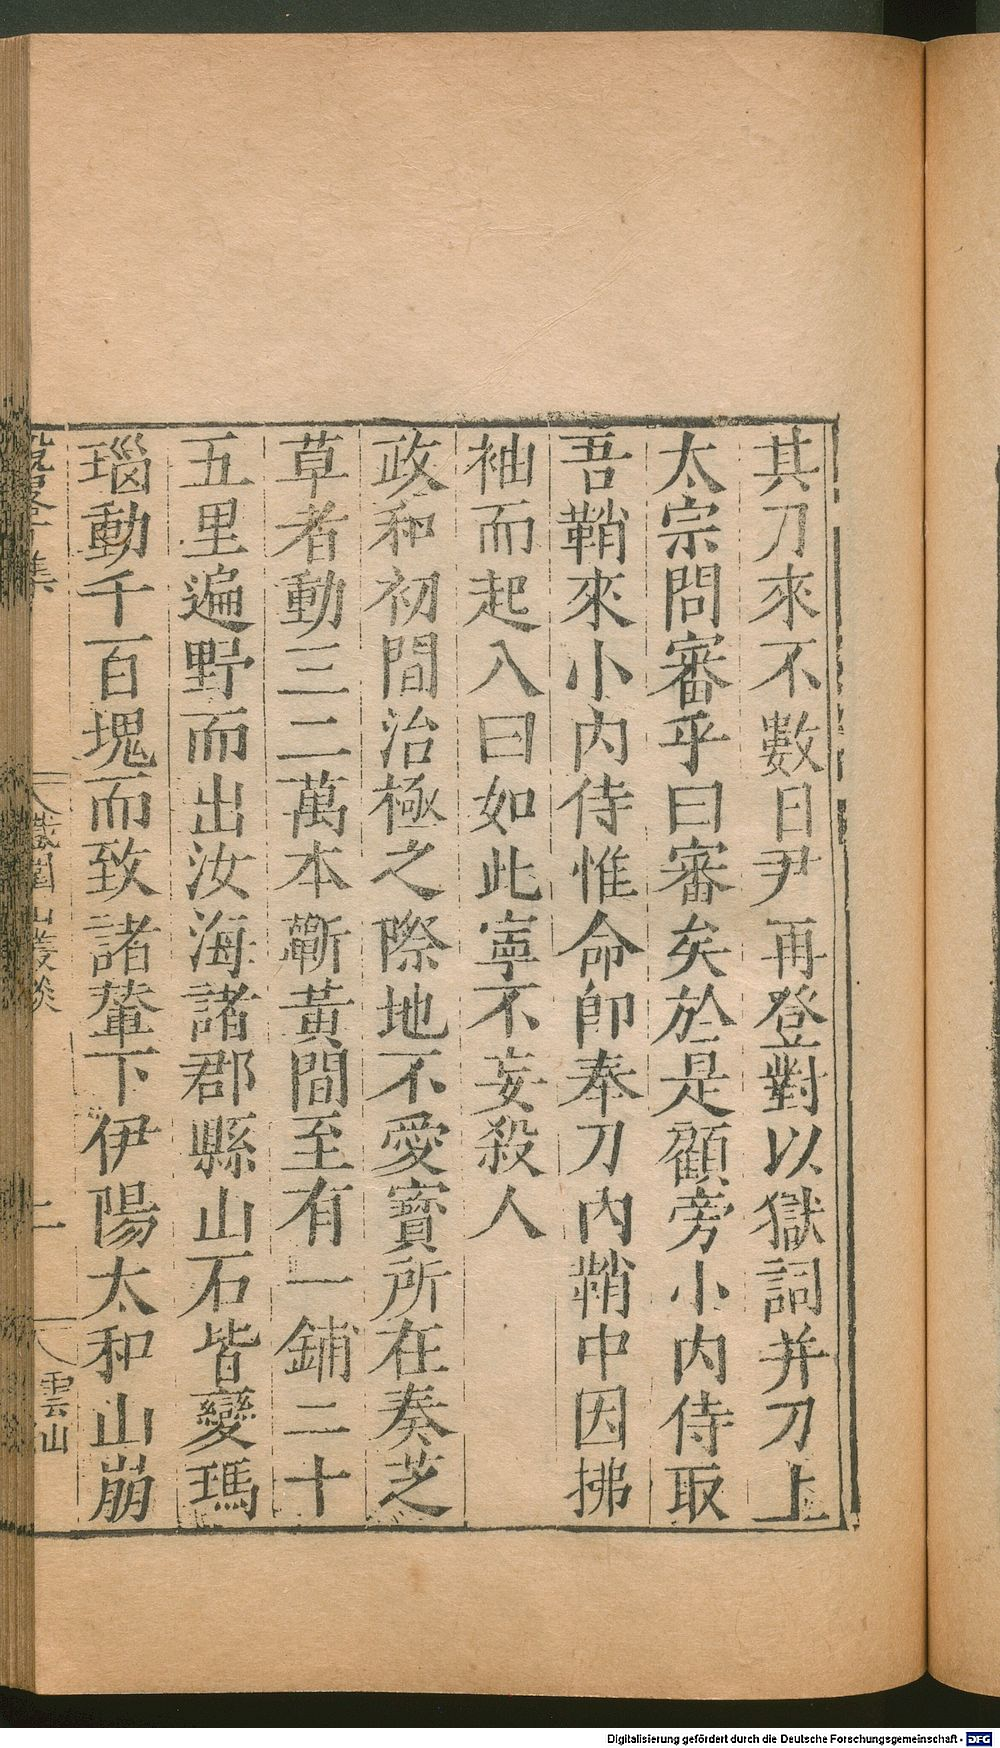 其刀來不數日尹再登對以獄詞并刀上
太宗問審乎曰審矣於是顧旁小内侍取
吾鞘來小内侍惟命即奉刀内鞘中因拂
袖而起入曰如此寧不妄殺人
政和初間治極之際地不愛寶所在奏芝
草者動三二萬本蘄黃間至有一鋪二十
五里遍野而出汝海諸郡縣山石皆變瑪
瑙動千百塊而致諸輦下伊陽太和山崩
鐵圍山叢談 二 雲山
Digitalisierung gefördert durch die Deutsche Forschungsgemeinschaft - DFG